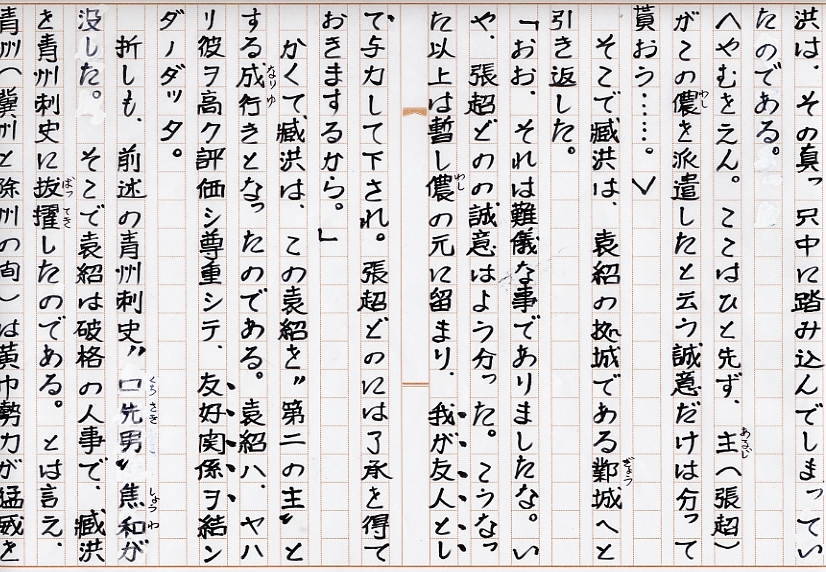 洪は、その真っ只中に踏み込んでしまってい
たのである。
へやむをえん。ここはひと先ず、主(張超)
がこの儂を派遣したと云う誠意だけは分って
貰おう……。〉
そこで臧洪は、袁紹の拠城である鄴城へと
引き返した。
「おお、それは難儀な事でありましたな。い
や、張超どのの誠意はよう分った。こうなっ
た以上は暫し儂の元に留まり、我が友人とし
て、与力して下され。張超どのには了承を得て
おきまするから。」
かくて臧洪は、この袁紹を〝第二の主〟と
する成行きとなったのである。袁紹ハ、ヤハ
リ彼ヲ高ク評価シ尊重シテ、友好関係ヲ結ン
ダノダッタ。
折しも、前述の青州刺史〝口先男〟焦和が
没した。そこで袁紹は破格の人事で、臧洪
を青州刺史に抜擢したのである。とは言え、
青州(冀州と徐州の間)は黄巾勢力が猛威を